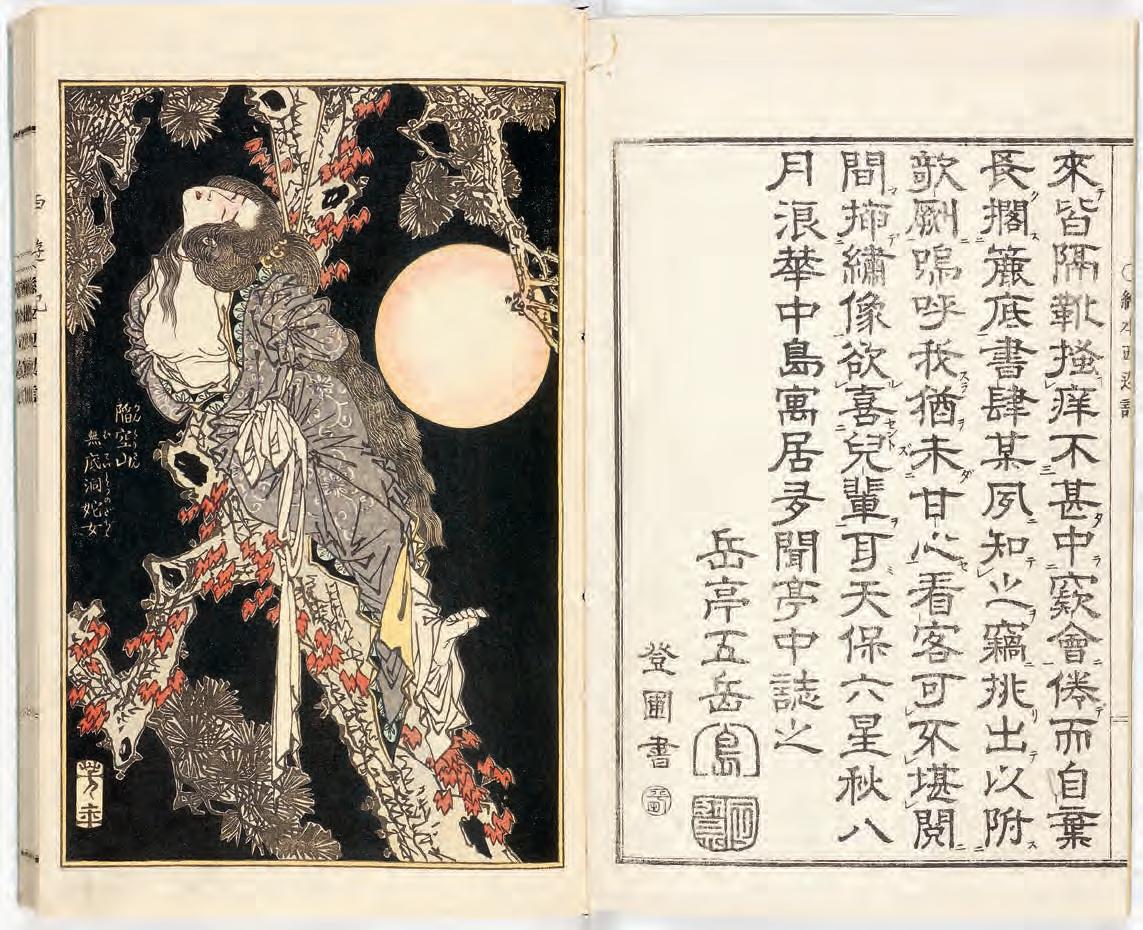 來皆隔靴搔痒不甚中窾會倦而自棄
長擱簏底書肆某夙知之竊挑出以附
欹劂嗚呼我猶未甘心看客可不堪閱
間揷繡像欲喜兒輩耳天保六星秋八
月浪華中島寓居多聞亭中誌之
岳亭五岳
登圃書
陷空山
無底洞姹女
芳年